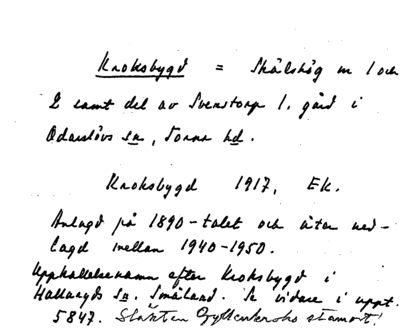 Kroksbygd = Skälshög m 1 och
2 samt del av Svenstorp 1. gård i
Odarslövs sn, Torna hd.
Kroksbygd 1917, Ek.
Anlagd på 1890-talet och åter ned-
lagd mellan 1940-1950.
Uppkallelsenamn efter Kroksbygd i
Hallaryds sn. Småland. Se vidare i uppt.
5847. Släkten Gyllenkroks stamort!